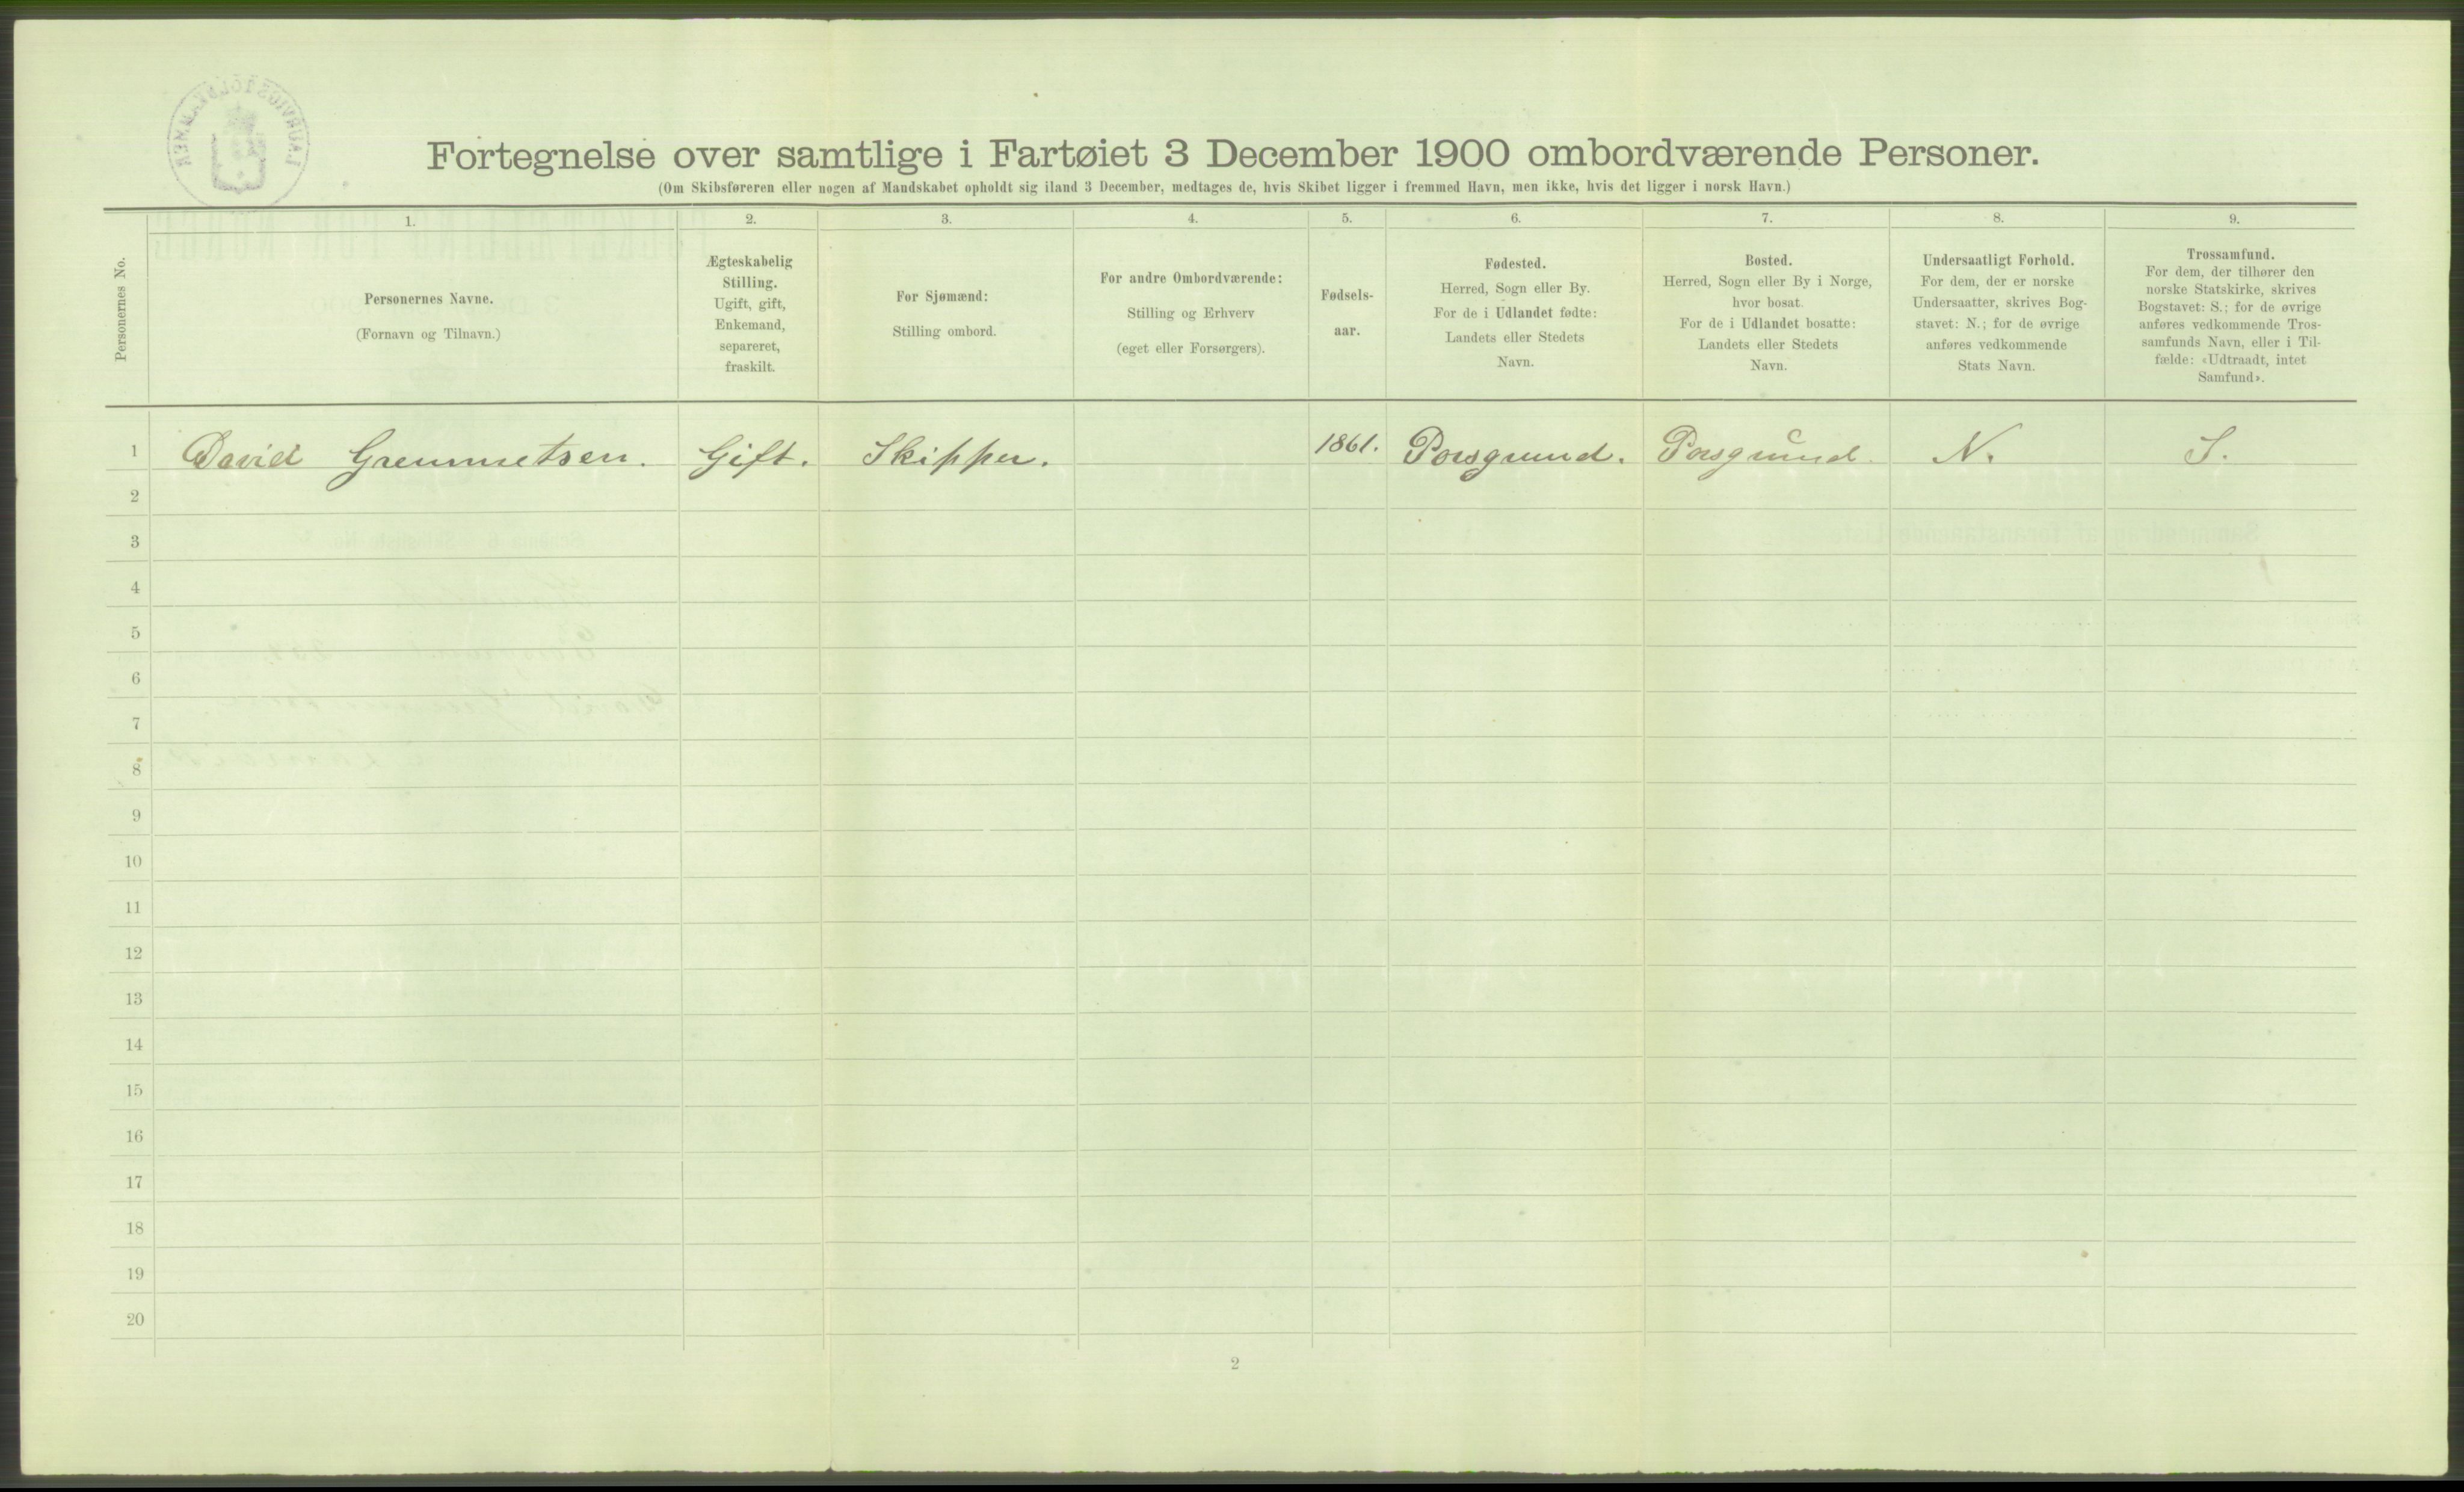 Fortegnelse over samtlige i Fartøiet 3 December 1900 ombordværende Personer.
(Om Skibsføreren eller nogen af Mandskabet opholdt sig iland 3 December, medtages de, hvis Skibet ligger i fremmed Havn, men ikke, hvis det ligger i norsk Havn.)
Personernes No.
1.
Personernes Navne.
(Fornavn og Tilnavn.)
2.
Ægteskabelig
Stilling.
Ugift, gift,
Enkemand,
separeret,
fraskilt.
3.
For Sjømænd:
Stilling ombord.
4.
For andre Ombordværende:
Stilling og Erhverv
(eget eller Forsørgers).
5.
Fødsels-
aar.
6.
Fødested.
Herred, Sogn eller By.
For de i Udlandet fødte:
Landets eller Stedets
Navn.
7.
Bosted.
Herred, Sogn eller By i Norge,
hvor bosat.
For de i Udlandet bosatte:
Landets eller Stedets
Navn.
8.
Undersaatligt Forhold.
For dem, der er norske
Undersaatter, skrives Bog-
stavet: N.; for de øvrige
anføres vedkommende
Stats Navn.
9.
Trossamfund.
For dem, der tilhører den
norske Statskirke, skrives
Bogstavet: S.; for de øvrige
anføres vedkommende Tros-
samfunds Navn, eller i Til-
fælde: «Udtraadt, intet
Samfund».
1 David Gremmetsen. Gift. Skipper. 1861. Porsgrund. Porsgrund. N. S.
2
3
4
5
6
7
8
9
10
11
12
13
14
15
16
17
18
19
20
2